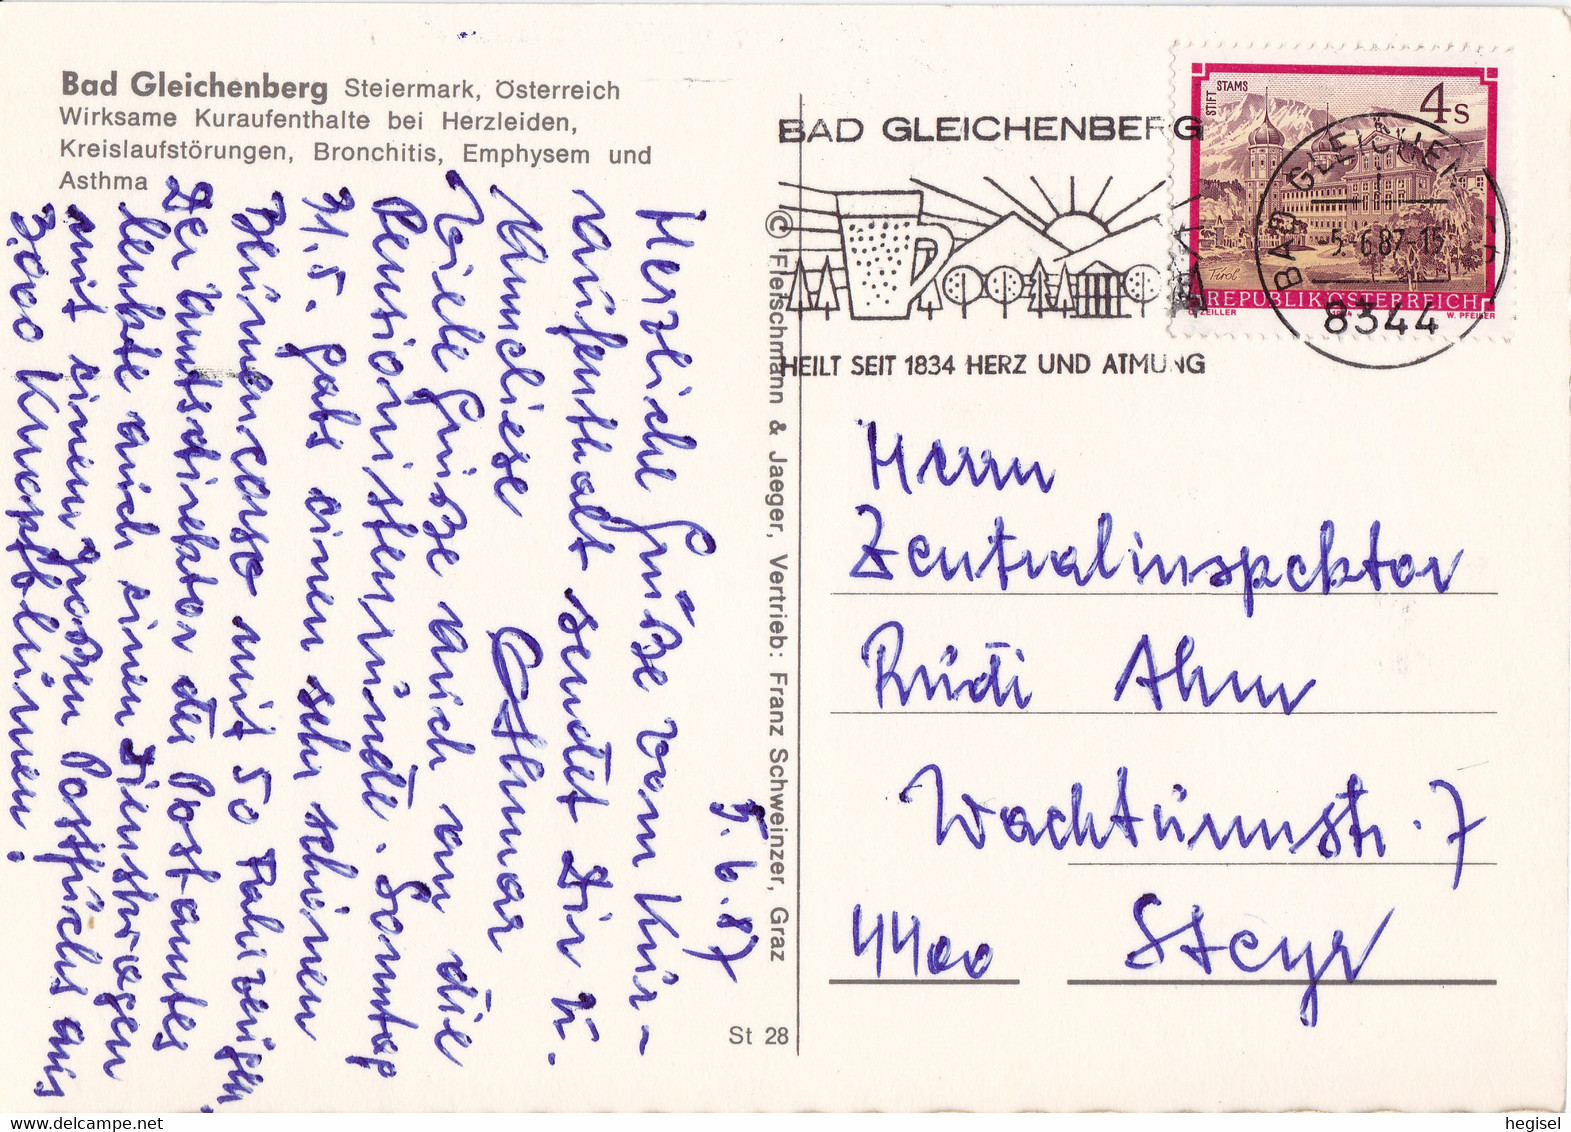 Bad Gleichenberg Steiermark, Österreich
Wirksame Kuraufenthalte bei Herzleiden,
Kreislaufstörungen, Bronchitis, Emphysem und
Asthma
5.6.87
Herzliche Grüße vom Kur-
aufenthalt sendet Dir u.
Anneliese Othmar
Viele Grüße auch an die
Pensionistenrunde. Sonntag
31.5. gabs einen sehr schönen
Blumencorso mit 50 Fahrzeugen.
Der Amtsdirektor des Postamtes
lenkte auch einen Dienstwagen
mit einem großen Postfuchs aus
3.000 Knopfblumen.
© Fleischmann & Jaeger, Vertrieb: Franz Schweinzer, Graz
St 28
BAD GLEICHENBERG
HEILT SEIT 1834 HERZ UND ATMUNG
STIFT STAMS
4 S
Tirol
REPUBLIK ÖSTERREICH
ZEILLER 1984 W. PFEILER
BAD GLEICHEN
-5.-6.87-15
8344
Herrn
Zentralinspektor
Rudi Ahm
Wachtturmstr. 7
4400 Steyr
www.delcampe.net
hegisel